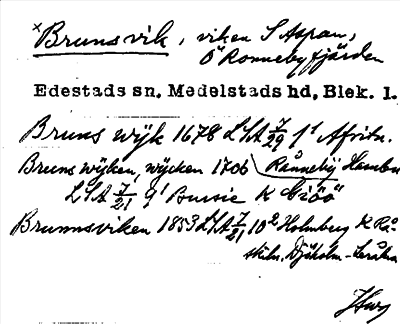 × Brunsvik, viken S Aspan,
Ö Ronnebyfjärden
Edestads sn, Medelstads hd, Blek. l.
Bruns wijk 1678 LSA 7/29 f¹ Afritn.
Bruns wijken, wijcken 1706 Rånneby Hambn
LSA 7/21 g¹ Buusie K Giöö
Brunnsviken 1853 LSA 7/21 10² Holmberg K Rå-
skiln. Djäkholm -